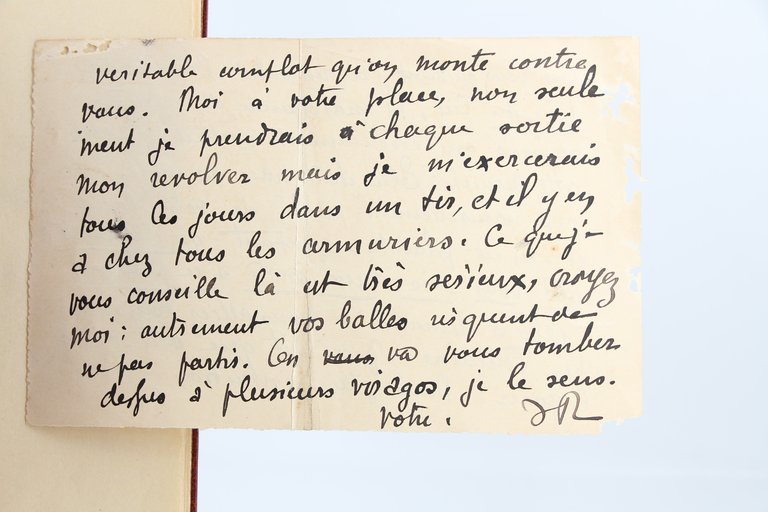 veritable complot qu'on monte contre
vous. Moi à votre place, non seule
ment je prendrais à chaque sortie
mon revolver mais je m'exercerais
tous les jours dans un tir, et il y en
a chez tous les armuriers. Ce que je
vous conseille là est très serieux, croyez
moi : autrement vos balles risquent de
ne pas partir. On va vous tomber
dessus à plusieurs voyagos, je le sens.
votre.
JR